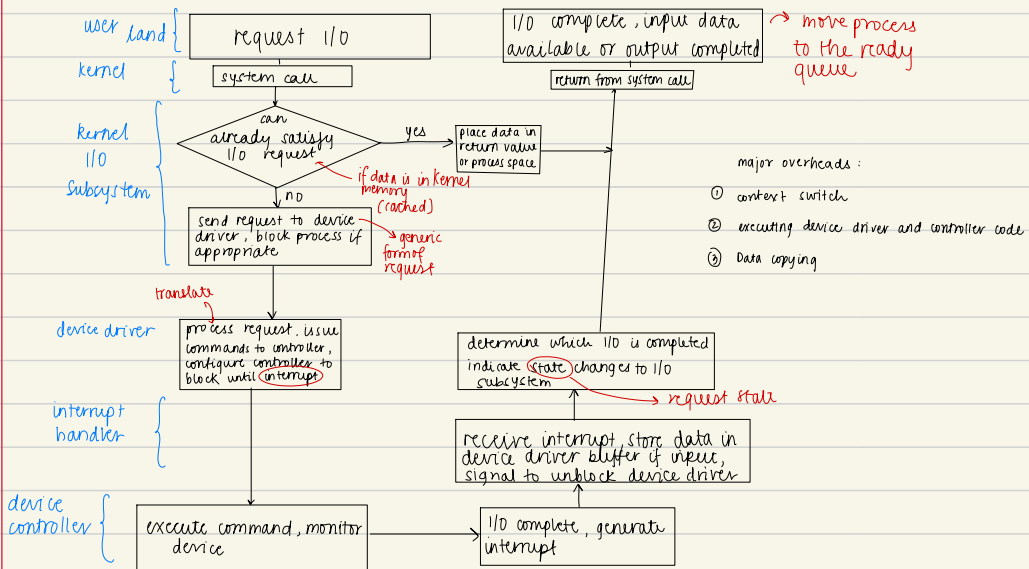 user land
request I/O
I/O complete, input data
available or output completed
move process
to the ready
queue
kernel
system call
return from system call
kernel
I/O
Subsystem
can
already satisfy
I/O request
yes
place data in
return value
or process space
if data is in kernel
memory
(cached)
no
send request to device
driver, block process if
appropriate
generic
form of
request
major overheads:
① context switch
② executing device driver and controller code
③ Data copying
translate
device driver
process request. issue
commands to controller,
configure controller to
block until interrupt
determine which I/O is completed
indicate state changes to I/O
subsystem
request state
interrupt
handler
receive interrupt, store data in
device driver buffer if input,
signal to unblock device driver
device
controller
execute command, monitor
device
I/O complete, generate
interrupt